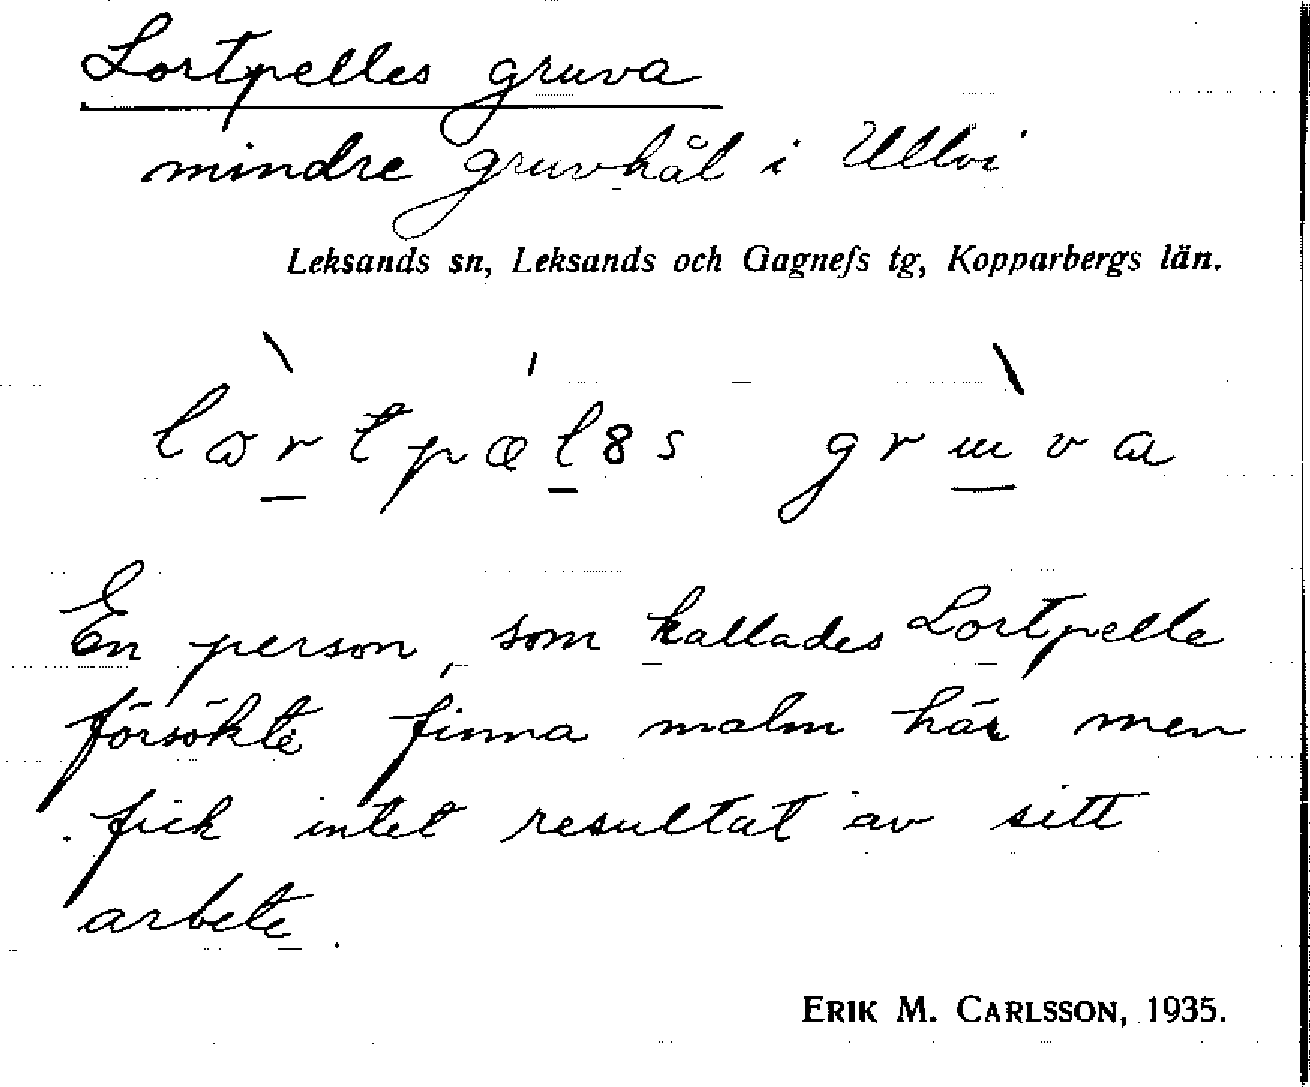 Lortpelles gruva
mindre gruvhål i Ullvi
Leksands sn, Leksands och Gagnefs tg, Kopparbergs län.
En person, som kallades Lortpelle
försökte finna malm här men
fick intet resultat av sitt
arbete.
ERIK M. CARLSSON, 1935.